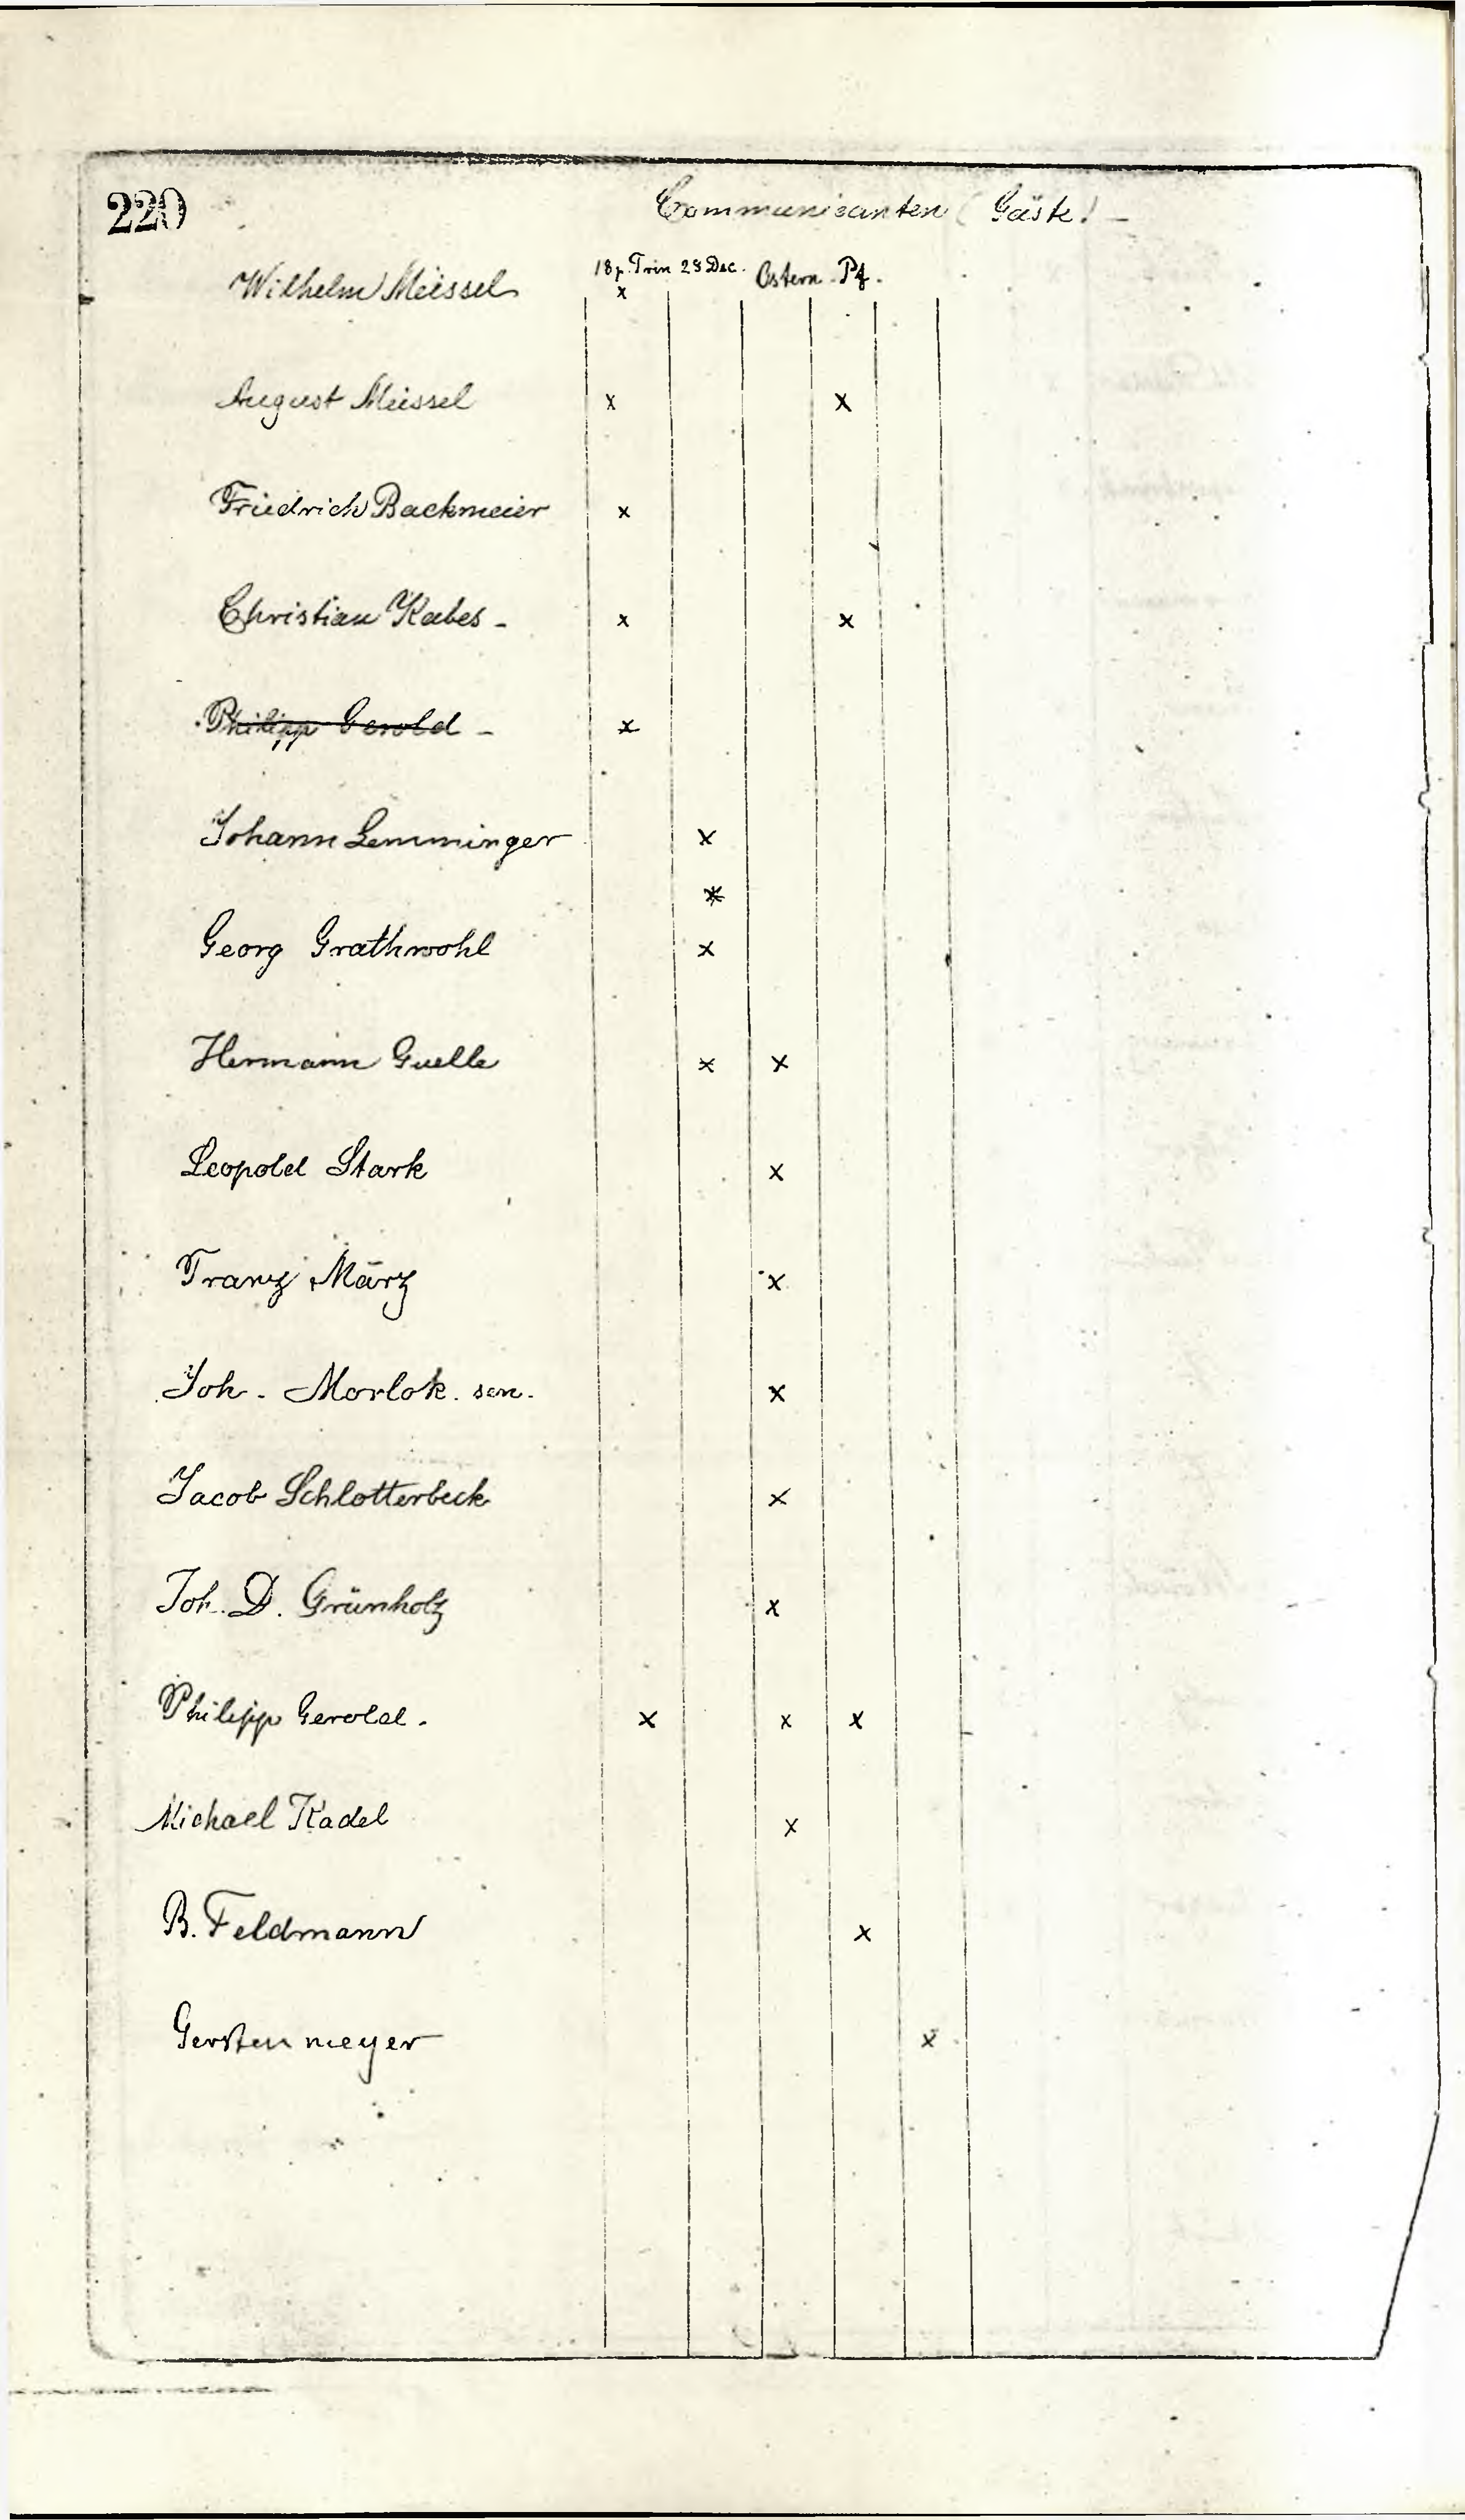 220
Communicanten (Gäste! -
18 p. Trin 28 Dec. Ostern. Pf.
Wilhelm Meissel x
August Meissel x x
Friedrich Backmeier x
Christian Kabes - x x
Philipp Gerold - x
Johann Lemminger x
x
Georg Grathwohl x
Hermann Guelle x x
Leopold Stark x
Franz März x
Joh. Morlok. sen. x
Jacob Schlotterbeck x
Joh. D. Grünholz x
Philipp Gerold. x x x
Michael Kadel x
B. Feldmann x
Gerstenmeyer x